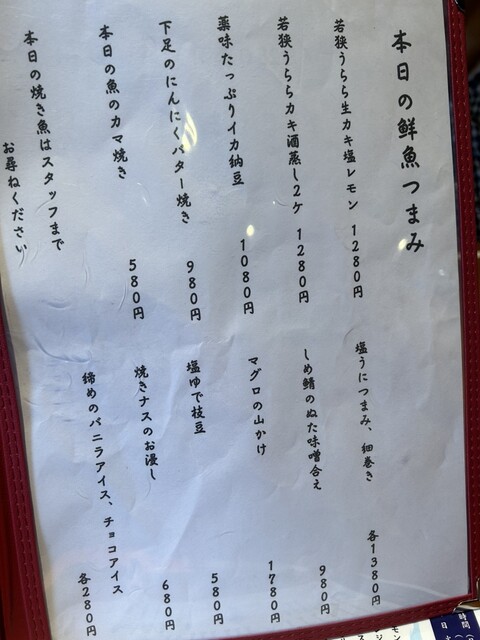 本日の鮮魚つまみ
若狭うらら生カキ塩レモン 1280円
若狭うららカキ酒蒸し2ケ 1280円
薬味たっぷりイカ納豆 1080円
下足のにんにくバター焼き 980円
本日の魚のカマ焼き 580円
本日の焼き魚はスタッフまで
お尋ねください
塩うにつまみ、細巻き 各1380円
しめ鯖のぬた味噌合え 980円
マグロの山かけ 1780円
塩ゆで枝豆 580円
焼きナスのお浸し 680円
締めのバニラアイス、チョコアイス 各280円